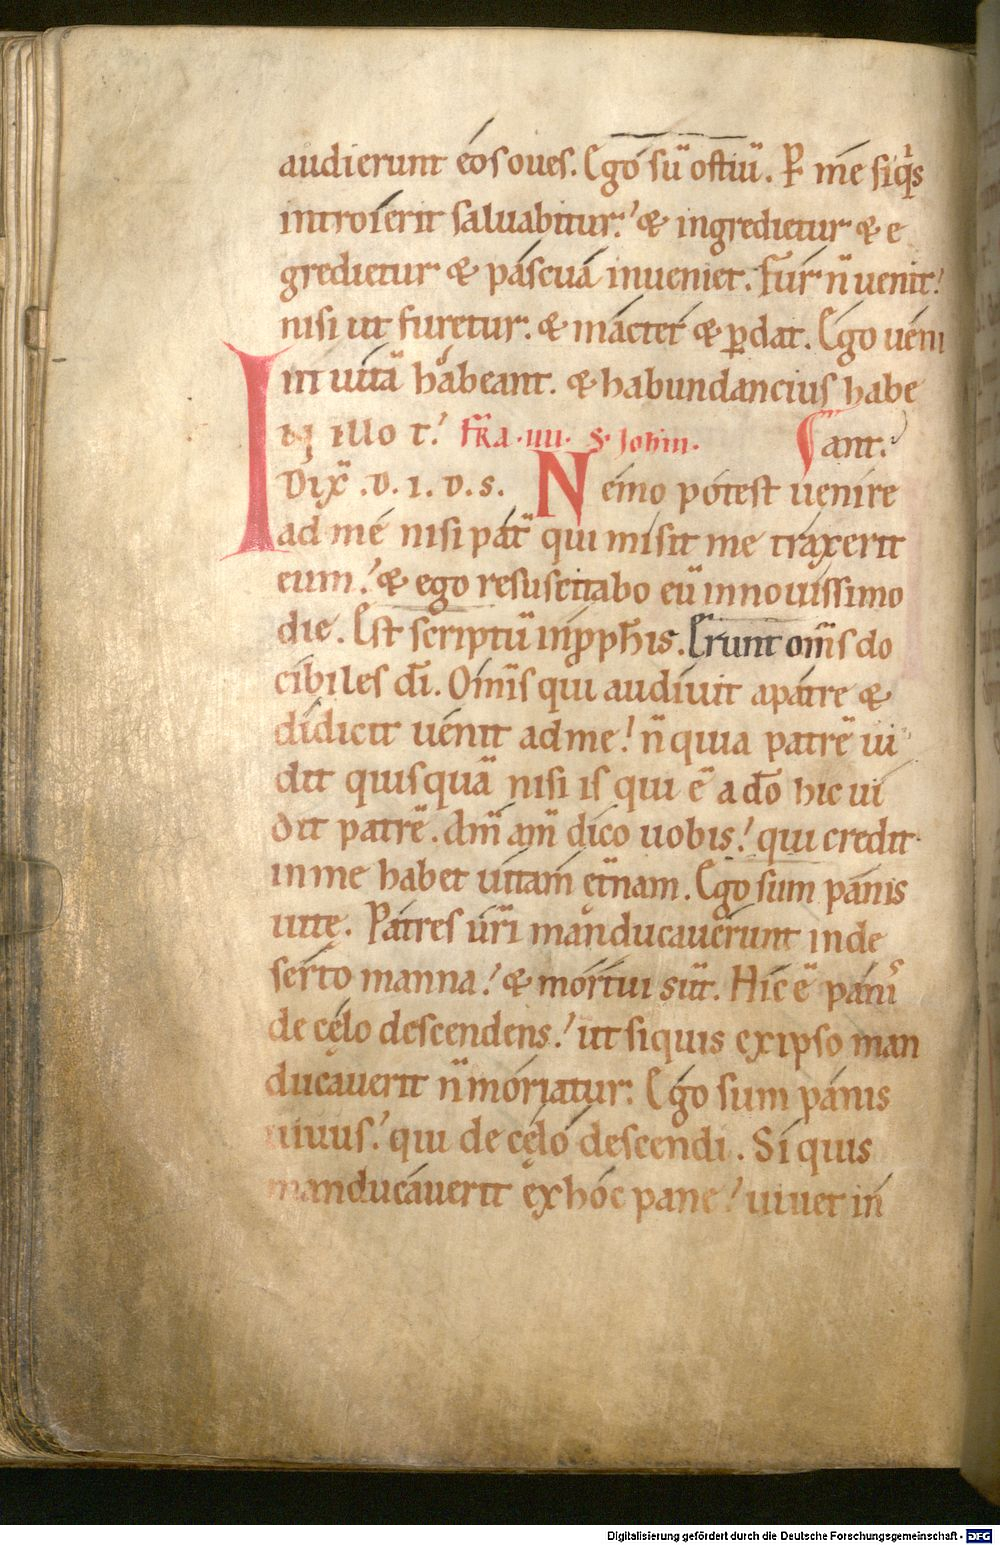 audierunt eos oues. Ego sū ostiū. P̲ me siq̇s
introierit saluabitur. & ingredietur & e
gredietur & pascuā inueniet. Fur n̄ uenit.
nisi ut furetur. & mactet & p̲dat. Ego ueni
ut uitā habeant. & habundancius habe
In illo t. FR̄a .IIII. S. Iohm. ant.
Dix̄ .D.I.D.S. Nemo potest uenire
ad me nisi pat̄ qui misit me traxerit
eum. & ego resuscitabo eū in nouissimo
die. Est scriptū in p̲ph̄is. Erunt om̄s do
cibiles dī. Om̄s qui audiuit a patre &
didicit uenit ad me. n̄ quia patrē ui
dit quisquā nisi is qui ē a dō hic ui
dit patrē. Am̄ am̄ dico uobis. qui credit
in me habet uitam ęt̄nam. Ego sum panis
uitę. Patres ur̄i manducauerunt in de
serto manna. & mortui sūt. Hic ē panis
de cęlo descendens. ut siquis ex ipso man
ducauerit n̄ moriatur. Ego sum panis
uiuus. qui de cęlo descendi. Si quis
manducauerit ex hoc pane. uiuet in
Digitalisierung gefördert durch die Deutsche Forschungsgemeinschaft - DFG